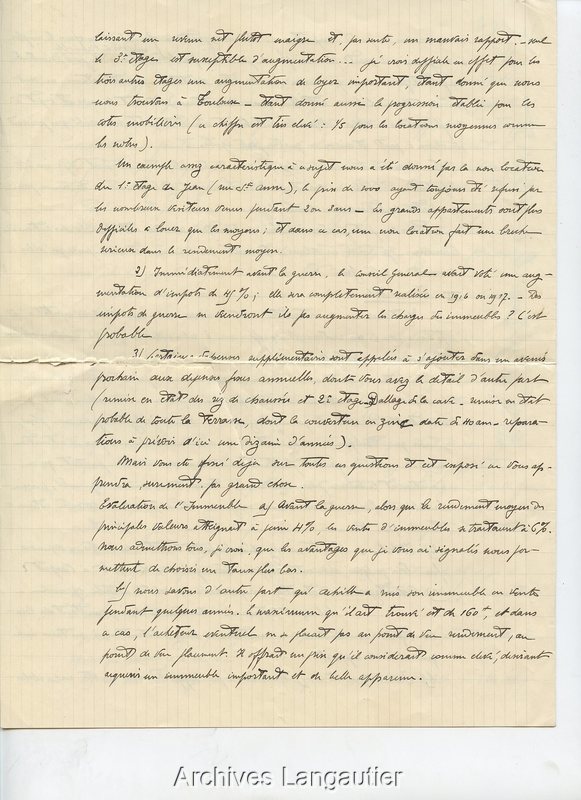 laissant un revenu net plutôt maigre et, par suite, un mauvais rapport. - seul
le 3e étage est susceptible d'augmentation... je crois difficile en effet pour les
trois autres étages une augmentation de loyer important, étant donné que nous
nous trouvons à Toulouse - étant donné aussi la progression établie pour les
cotes mobilières (ce chiffre est très élevé : 1/5 pour les locations moyennes comme
les nôtres).
Un exemple assez caractéristique à ce sujet nous a été donné par la non location
du 1er étage de Jean (rue Ste Anne), le prix de 2000 ayant toujours été refusé par
les nombreux visiteurs venus pendant 2 ou 3 ans - les grands appartements sont plus
difficiles à louer que les moyens ; et dans ce cas, une non location fait une brèche
sérieuse dans le rendement moyen.
2) Immédiatement avant la guerre, le Conseil Général avait voté une aug-
mentation d'impôts de 45% ; elle sera complètement réalisée en 1916 ou 1917. - Des
impôts de guerre ne viendront-ils pas augmenter les charges des immeubles ? C'est
probable
3) Certaines dépenses supplémentaires sont appelées à s'ajouter dans un avenir
prochain aux dépenses fixes annuelles, dont vous avez le détail d'autre part
(remise en état des rez de chaussée et 2e étage - Dallage de la cave - remise en état
probable de toute la terrasse, dont la couverture en zinc date de 40 ans - répara-
tions à prévoir d'ici une dizaine d'années).
Mais vous êtes fixé déjà sur toutes ces questions et cet exposé ne vous ap-
prendra, sûrement, pas grand chose.
Evaluation de l'Immeuble a) Avant la guerre, alors que le rendement moyen des
principales valeurs atteignait à peine 4%, les ventes d'immeubles se traitaient à 6%.
Nous admettrons tous, je crois, que les avantages que je vous ai signalés nous per-
mettent de choisir un taux plus bas.
b) nous savons d'autre part qu'Achille a mis son immeuble en vente
pendant quelques années. Le maximum qu'il ait trouvé est de 160, et dans
ce cas, l'acheteur éventuel ne se plaçait pas au point de vue rendement, au
point de vue placement. Il offrait un prix qu'il considérait comme élevé, désirant
acquérir un immeuble important et de belle apparence.
Archives Langautier